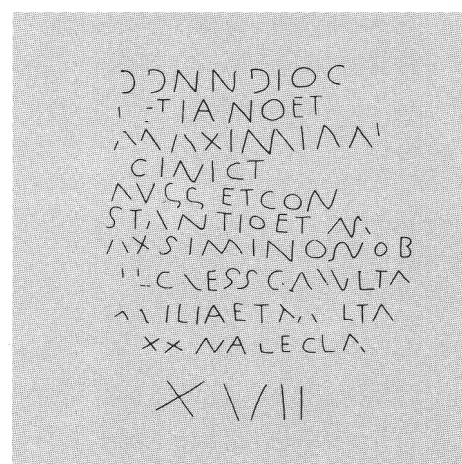 DDNNDIOC
TIANOET
MAXIMIANI
CINICT
AVGG ETCON
STANTIOET M
AXSIMINONOB
CAESS
MILIAET LTA
XXNALECLA
XVII